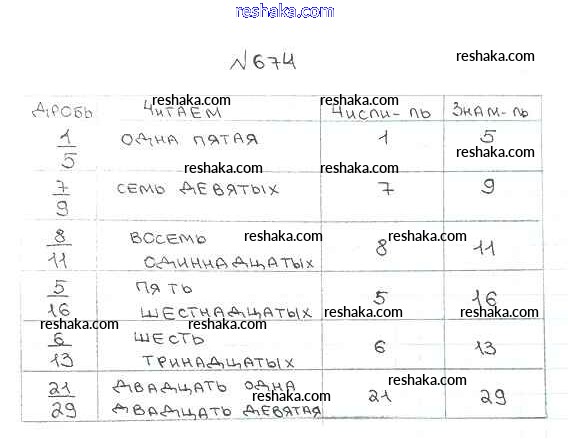 reshaka.com
№674
reshaka.com
reshaka.com
reshaka.com
ДРОБЬ ЧИТАЕМ ЧИСЛИ-ЛЬ ЗНАМ-ЛЬ
1/5 ОДНА ПЯТАЯ 1 5
reshaka.com
reshaka.com
7/9 СЕМЬ ДЕВЯТЫХ 7 9
reshaka.com
reshaka.com
8/11 ВОСЕМЬ 8 11
reshaka.com
reshaka.com
ОДИННАДЦАТЫХ
5/16 ПЯТЬ 5 16
reshaka.com
ШЕСТНАДЦАТЫХ
reshaka.com
reshaka.com
6/13 ШЕСТЬ 6 13
reshaka.com
ТРИНАДЦАТЫХ
21/29 ДВАДЦАТЬ ОДНА 21 29
reshaka.com
ДВАДЦАТЬ ДЕВЯТАЯ
reshaka.com
reshaka.com